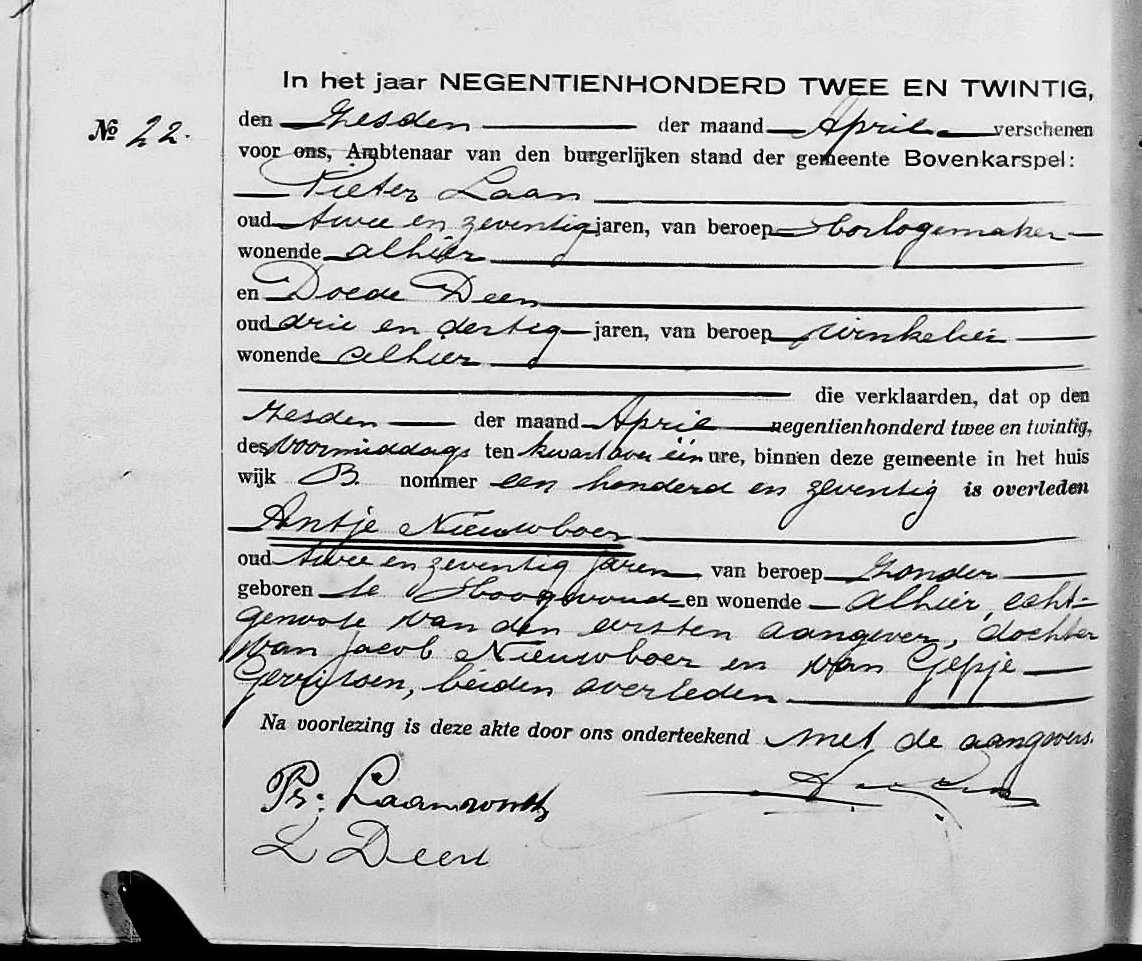 In het jaar NEGENTIENHONDERD TWEE EN TWINTIG,
№ 22.
den Zesden der maand April verschenen
voor ons, Ambtenaar van den burgerlijken stand der gemeente Bovenkarspel:
Pieter Laan
oud twee en zeventig jaren, van beroep Horlogemaker
wonende alhier
en Doede Deen
oud drie en dertig jaren, van beroep winkelier
wonende alhier
die verklaarden, dat op den
Zesden der maand April negentienhonderd twee en twintig,
des voormiddags ten kwart over één ure, binnen deze gemeente in het huis
wijk B. nommer een honderd en zeventig is overleden
Antje Nieuwboer
oud twee en zeventig jaren van beroep Zonder
geboren te Hoogwoud en wonende alhier, echt-
genoote van den eersten aangever, dochter
van Jacob Nieuwboer en van Gepje
Gerritsen, beiden overleden
Na voorlezing is deze akte door ons onderteekend met de aangevers.
Pr: Laan
Deen